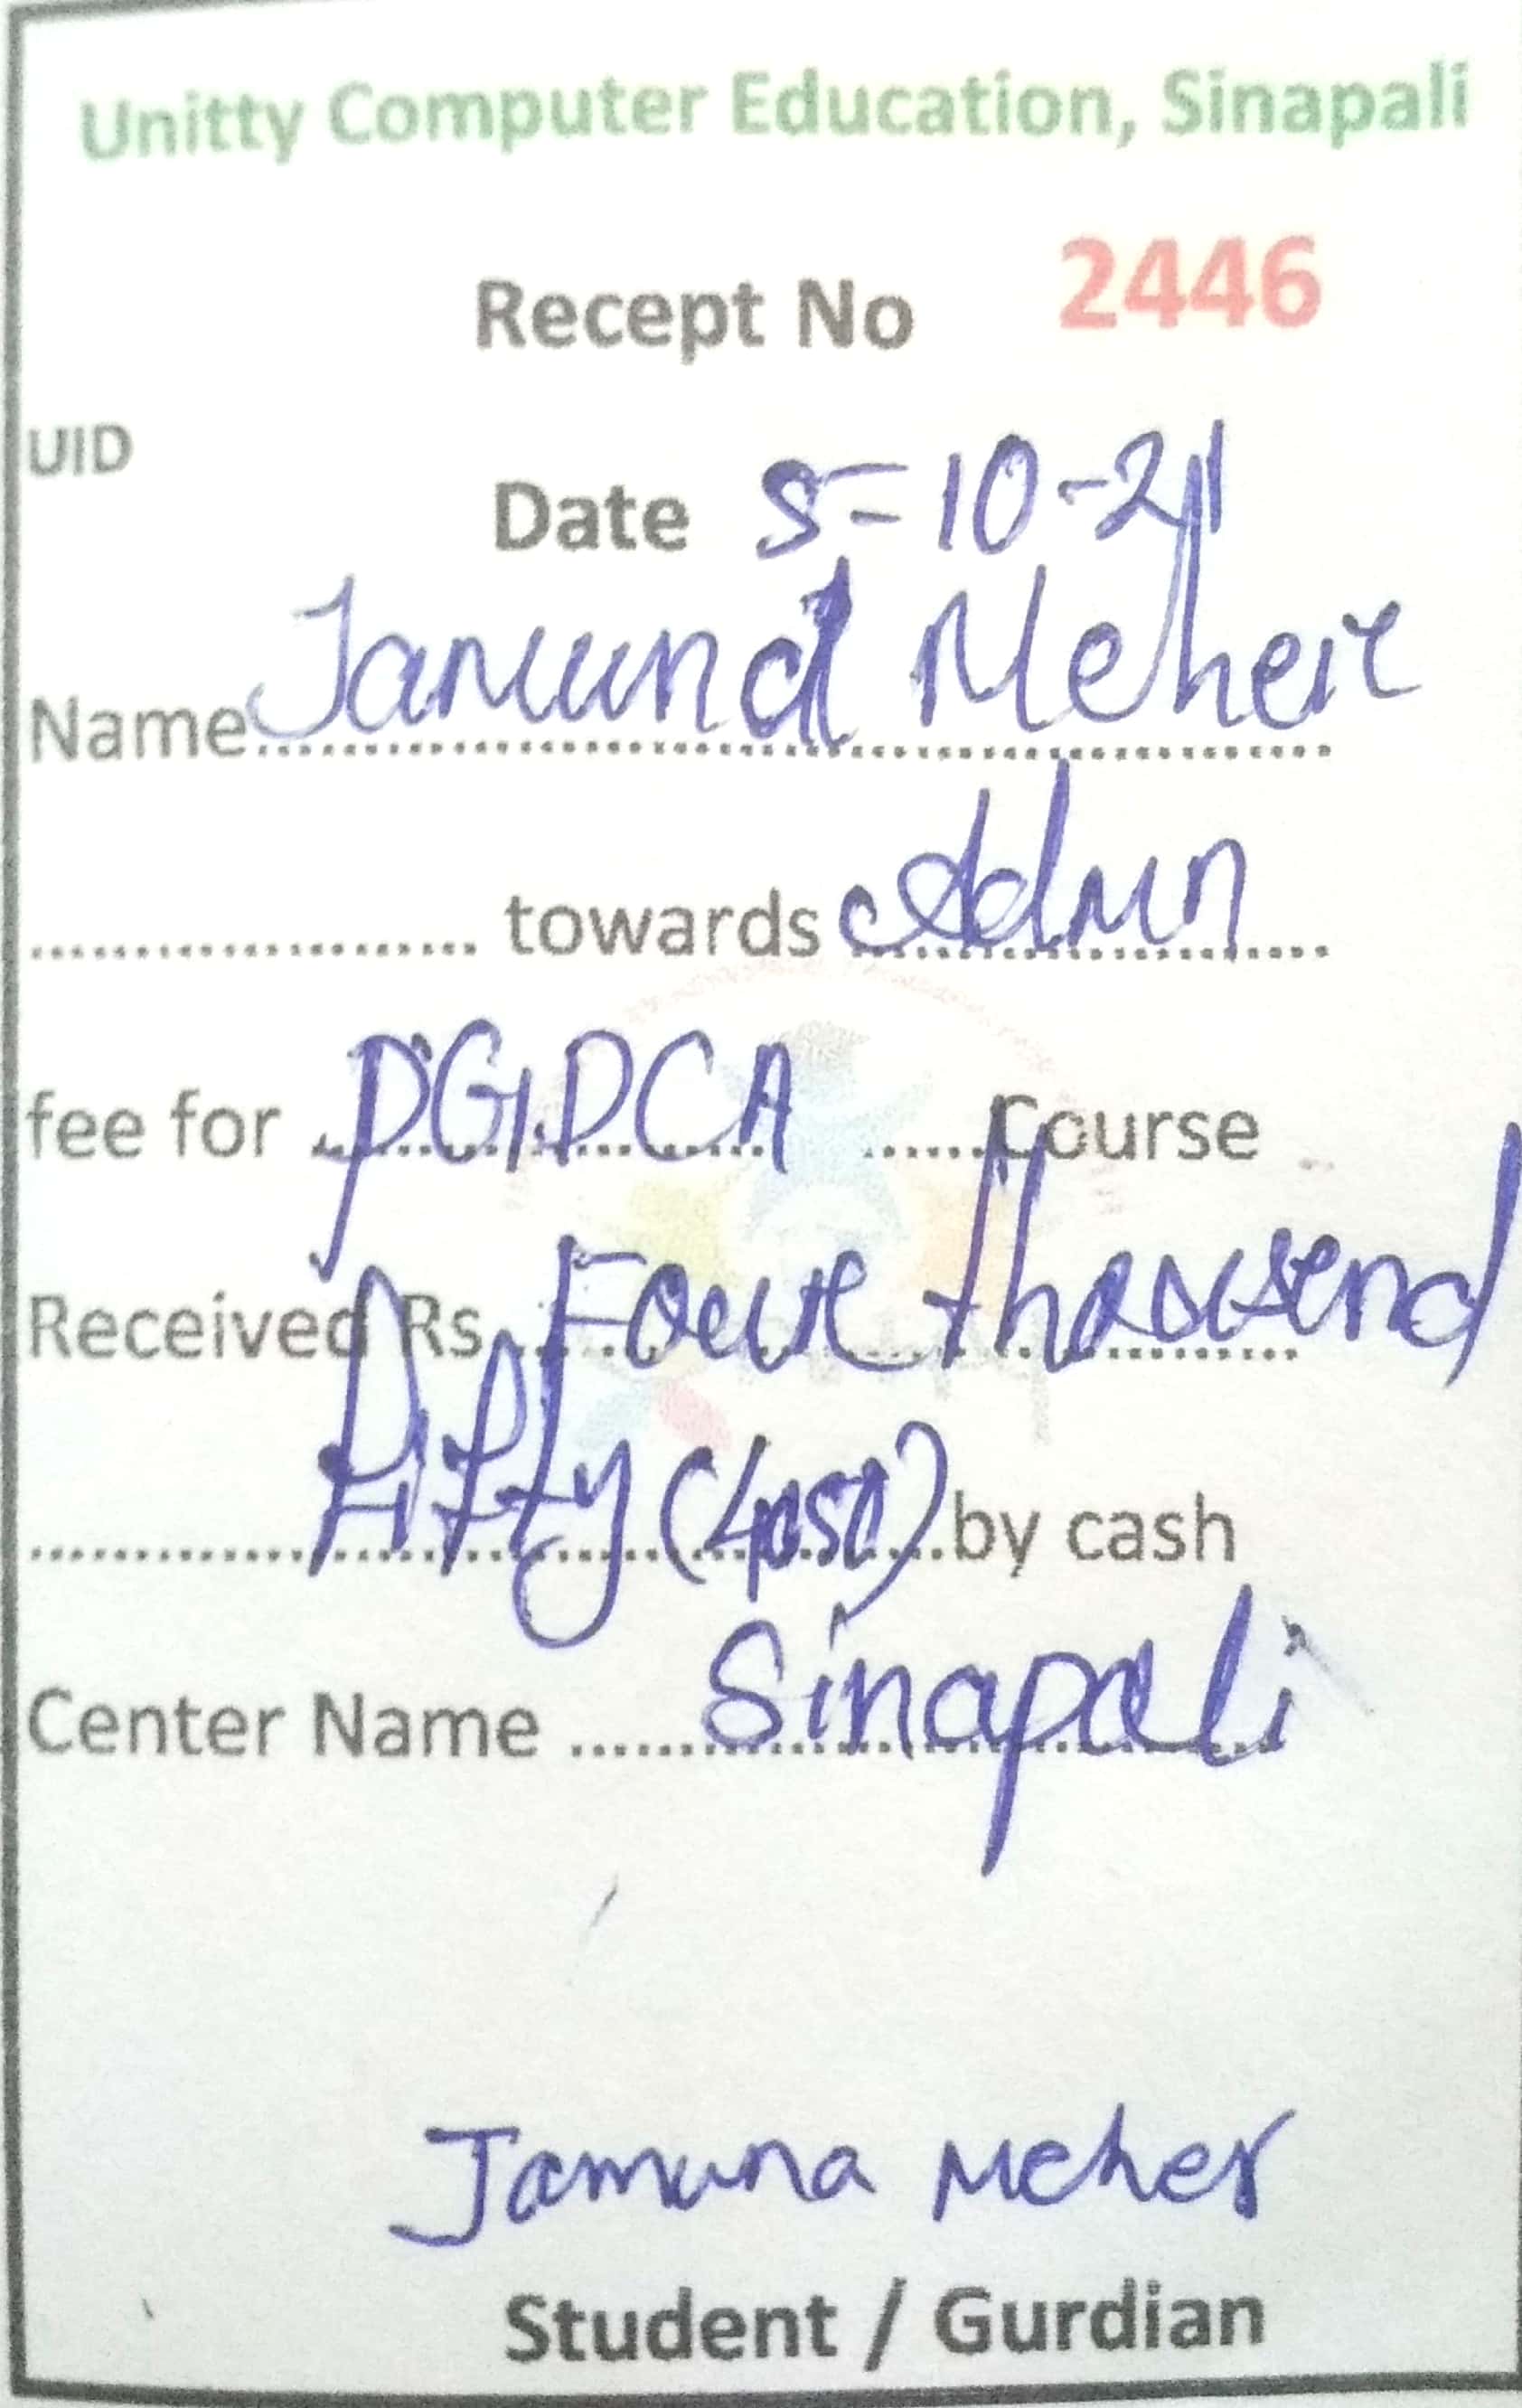 Unitty Computer Education, Sinapali
Recept No 2446
UID
Date 5-10-21
Name Jamuna Meher
.................... towards Admn
fee for PGDCA ......Course
Received Rs. Four thousend
Fifty (4050) by cash
Center Name ...... Sinapali
Jamuna Meher
Student / Gurdian